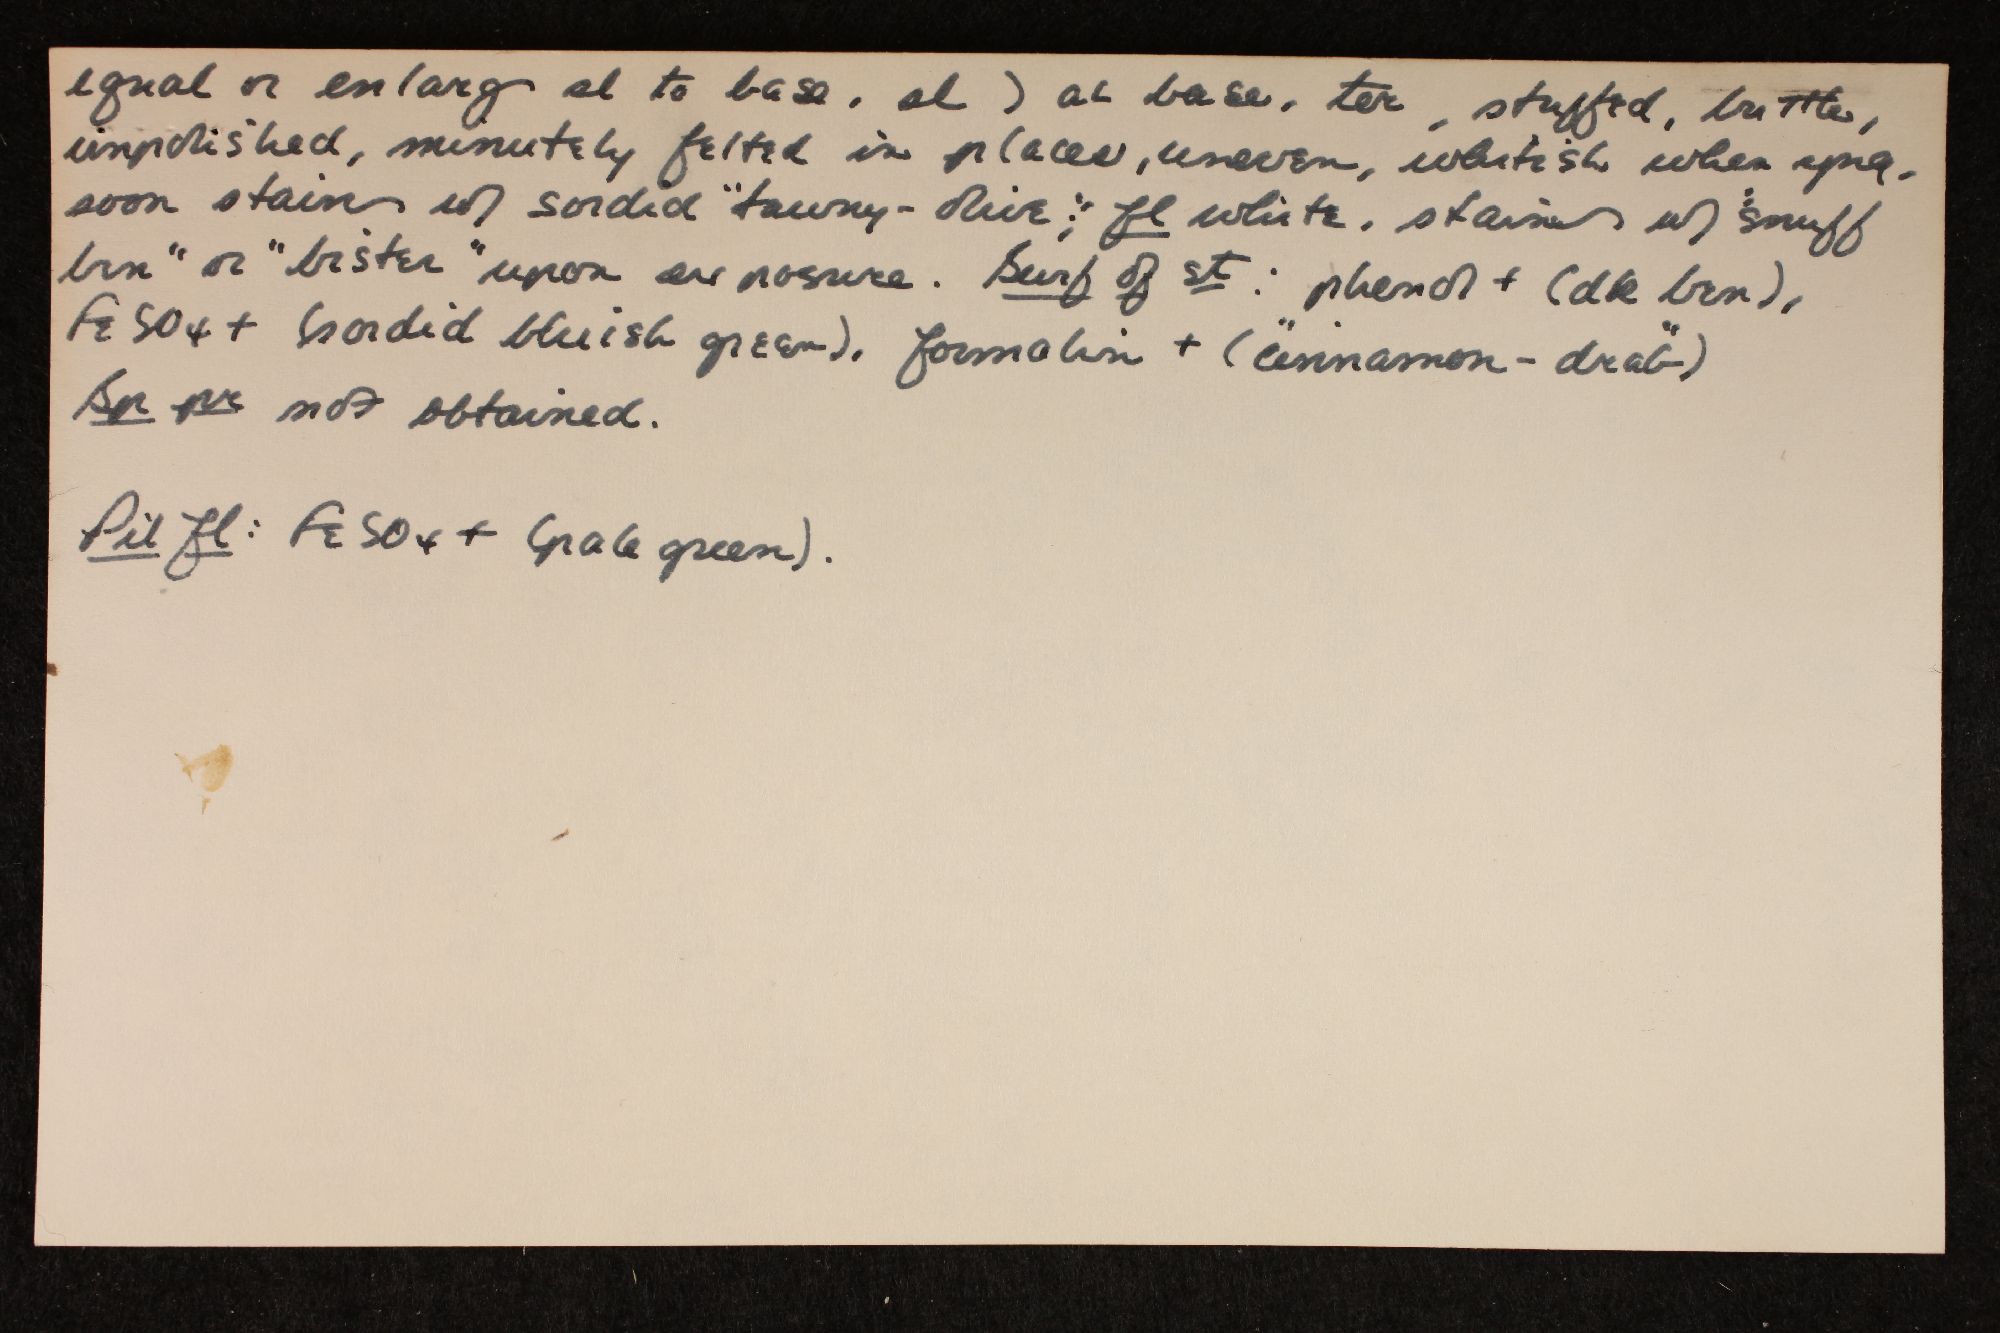 equal or enlarg sl to base, sl ) at base, ter, stuffed, brittle,
unpolished, minutely felted in places, uneven, whitish when yng,
soon stains w/ sordid "tawny-olive"; fl white, stains w/ "snuff
brn" or "bister" upon exposure. Surf of st: phenol + (dk brn),
FeSO4 + (sordid bluish green), formalin + ("cinnamon-drab")
Sp pr not obtained.
Pil fl: FeSO4 + (pale green).